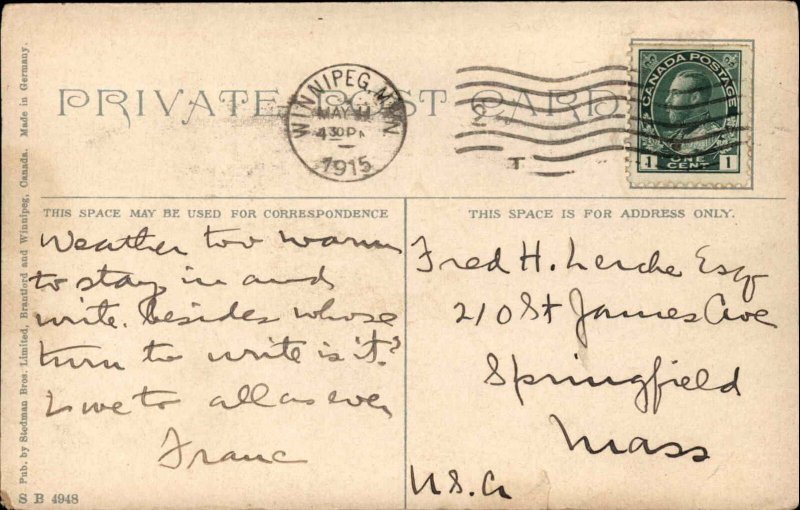 PRIVATE POST CARD
WINNIPEG, MAN
MAY
430 PM
1915
CANADA POSTAGE
1 ONE CENT 1
THIS SPACE MAY BE USED FOR CORRESPONDENCE
Weather too warm
to stay in and
write. Besides whose
turn to write is it?
Love to all as ever
Franc
THIS SPACE IS FOR ADDRESS ONLY.
Fred H. Lerche Esq
210 St James Ave
Springfield
Mass
U.S.A
Pub. by Stedman Bros. Limited, Brantford and Winnipeg, Canada. Made in Germany.
S B 4948